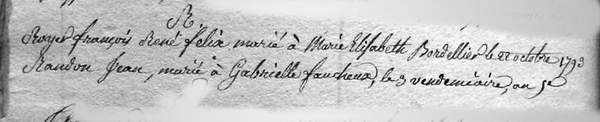 R.
Royer françois René félix marié à Marie Elisabeth Bordellier le 22 octobre 1793
Randon Jean, marié à Gabrielle faucheux, le 3 vendemiaire, an 5e